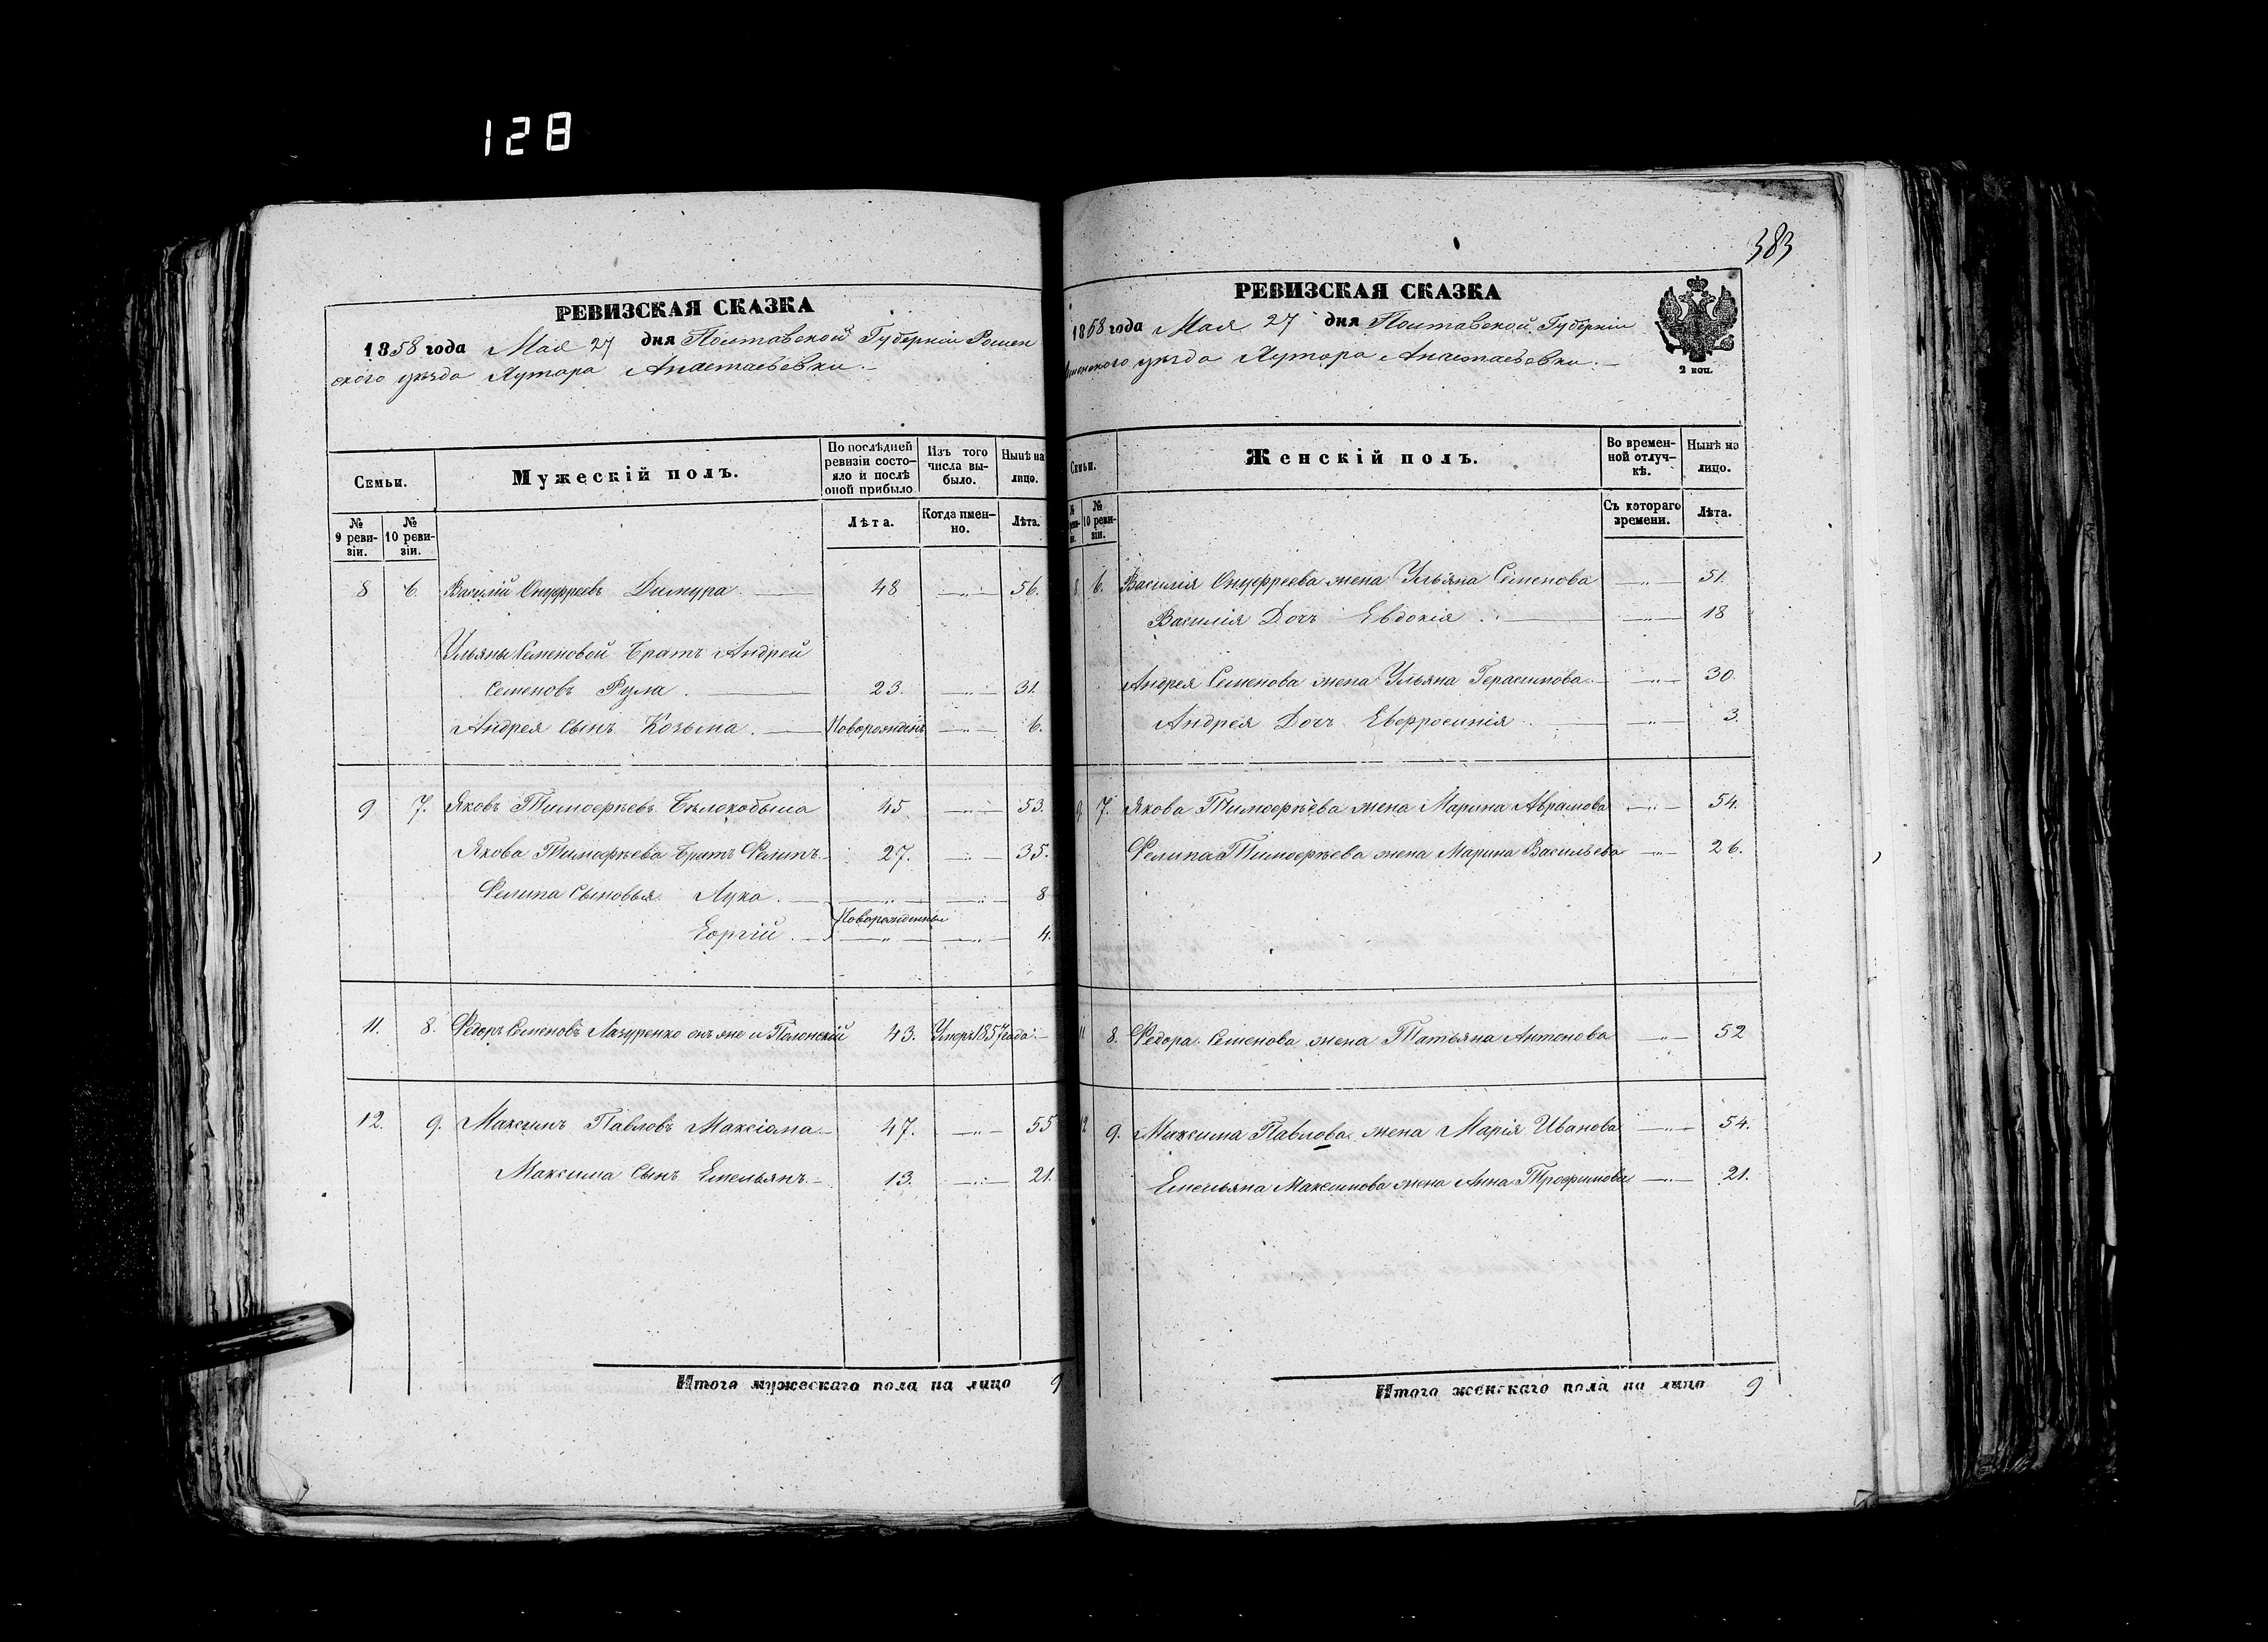 128
383
РЕВИЗСКАЯ СКАЗКА
1858 года Мая 27 дня Полтавской Губерніи Ромен
ского уѣзда Хутора Анастасьевки.
Семьи.
Мужескій полъ.
По послѣдней ревизіи состояло и послѣ оной прибыло
Изъ того числа выбыло.
Нынѣ на лицо.
№ 9 ревизіи.
№ 10 ревизіи.
Лѣта.
Когда именно.
Лѣта.
8 6. Василій Онуфреевъ Димура 48 —„— 56.
Ульяны Семеновой Братъ Андрей
Семеновъ Рула 23. —„— 31.
Андрея Сынъ Козьма. Новорожденъ —„— 6.
9 7. Яковъ Тимофѣевъ Бѣлокобыла 45. —„— 53.
Якова Тимофѣева Братъ Филипъ 27. —„— 35.
Филипа Сыновья Лука. —„— —„— 8
Новорожденны
Еоргій. —„— —„— 4.
11. 8. Федоръ Семеновъ Лазуренко онъ же и Полонскій 43. Умеръ 1857 года.
12. 9. Максимъ Павловъ Максіома 47. —„— 55
Максима Сынъ Емельянъ 13. —„— 21.
Итого мужескаго пола на лицо 9
РЕВИЗСКАЯ СКАЗКА
1858 года Мая 27 дня Полтавской Губерніи
Роменского уѣзда Хутора Анастасьевки.
2 коп.
Семьи.
Женскій полъ.
Во временной отлучкѣ.
Нынѣ на лицо.
№ 10 ревизіи.
Съ котораго времени.
Лѣта.
8 6. Василія Онуфреева жена Ульяна Семенова —„— 51.
Василія Дочь Евдокія —„— 18
Андрея Семенова жена Ульяна Герасимова —„— 30.
Андрея Дочь Евфросинія —„— 3.
9 7. Якова Тимофѣева жена Марина Аврамова —„— 54.
Филипа Тимофѣева жена Марина Васильева —„— 26.
11 8. Федора Семенова жена Татьяна Антонова —„— 52
12 9. Максима Павлова жена Марія Иванова —„— 54.
Емельяна Максимова жена Анна Трофимова —„— 21.
Итого женскаго пола на лицо 9